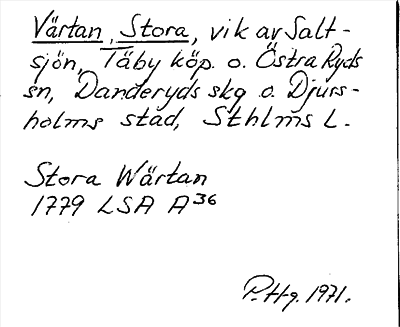 Värtan, Stora, vik av Salt-
sjön, Täby köp. o. Östra Ryds
sn, Danderyds skg o. Djurs-
holms stad, Sthlms L.
Stora Wärtan
1779 LSA A36
P.Hg. 1971.